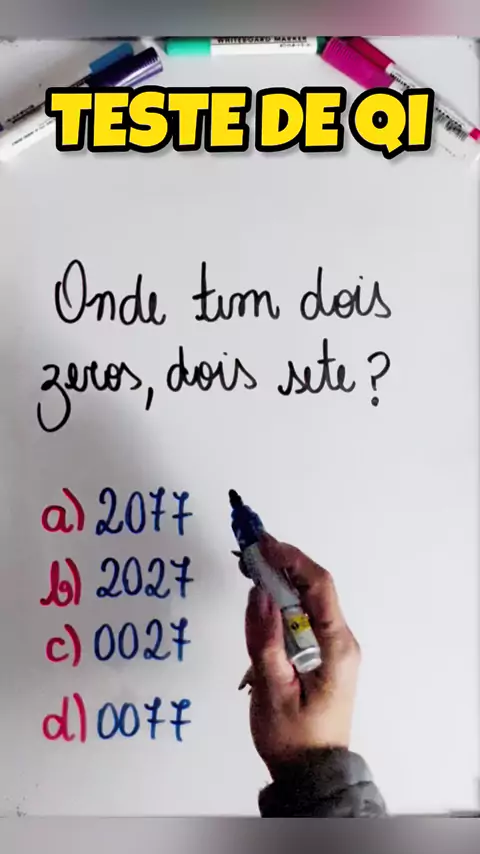 WHITEBOARD MARKER
TESTE DE QI
Onde tem dois
zeros, dois sete?
a) 2077
b) 2027
c) 0027
d) 0077